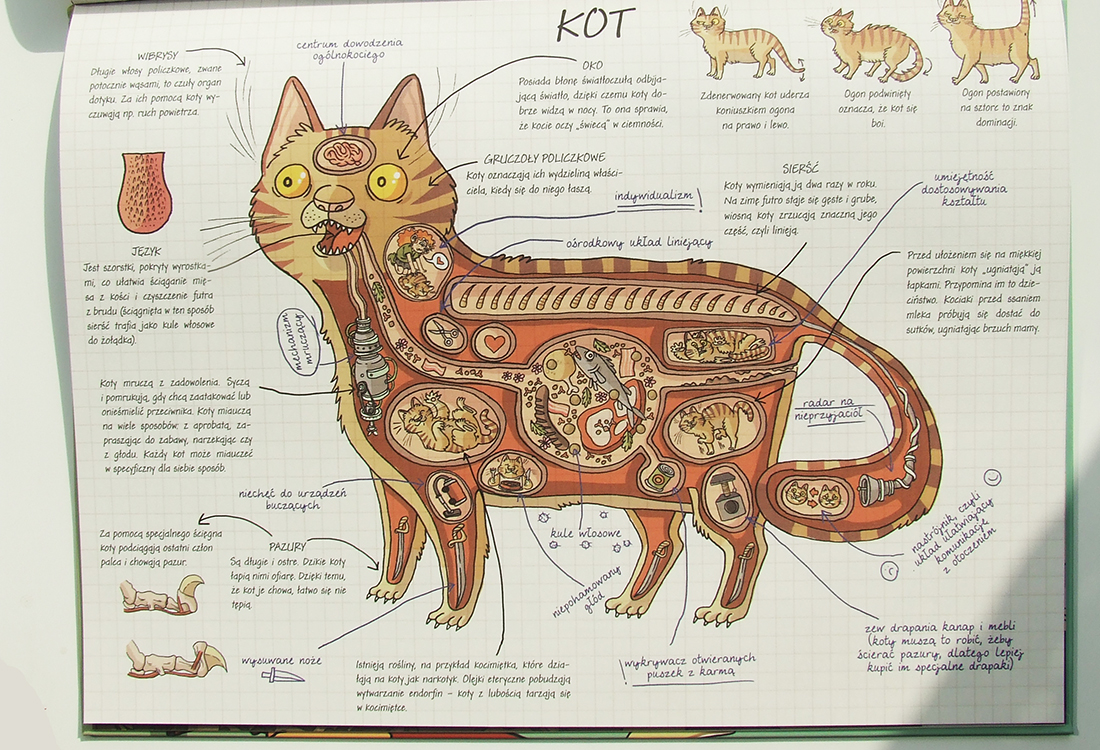 KOT
WIBRYSY
Długie włosy policzkowe, zwane
potocznie wąsami, to czuły organ
dotyku. Za ich pomocą koty wy-
czuwają np. ruch powietrza.
centrum dowodzenia
ogólnokociego
OKO
Posiada błonę światłoczułą odbija-
jącą światło, dzięki czemu koty do-
brze widzą w nocy. To ona sprawia,
że kocie oczy „świecą" w ciemności.
Zdenerwowany kot uderza
koniuszkiem ogona
na prawo i lewo.
Ogon podwinięty
oznacza, że kot się
boi.
Ogon postawiony
na sztorc to znak
dominacji.
GRUCZOŁY POLICZKOWE
Koty oznaczają ich wydzieliną właści-
ciela, kiedy się do niego łaszą.
indywidualizm!
ośrodkowy układ liniejący
SIERŚĆ
Koty wymieniają ją dwa razy w roku.
Na zimę futro staje się gęste i grube,
wiosną koty zrzucają znaczną jego
część, czyli linieją.
umiejętność
dostosowywania
kształtu
JĘZYK
Jest szorstki, pokryty wyrostka-
mi, co ułatwia ściąganie mię-
sa z kości i czyszczenie futra
z brudu (ściągnięta w ten sposób
sierść trafia jako kule włosowe
do żołądka).
Przed ułożeniem się na miękkiej
powierzchni koty „ugniatają" ją
łapkami. Przypomina im to dzie-
ciństwo. Kociaki przed ssaniem
mleka próbują się dostać do
sutków, ugniatając brzuch mamy.
mechanizm
mruczący
Koty mruczą z zadowolenia. Syczą
i pomrukują, gdy chcą zaatakować lub
onieśmielić przeciwnika. Koty miauczą
na wiele sposobów: z aprobatą, za-
praszając do zabawy, narzekając czy
z głodu. Każdy kot może miauczeć
w specyficzny dla siebie sposób.
radar na
nieprzyjaciół
niechęć do urządzeń
buczących
Za pomocą specjalnego ścięgna
koty podciągają ostatni człon
palca i chowają pazur.
PAZURY
Są długie i ostre. Dzikie koty
łapią nimi ofiarę. Dzięki temu,
że kot je chowa, łatwo się nie
tępią.
kule włosowe
niepohamowany
głód
nastrójnik, czyli
układ ułatwiający
komunikację
z otoczeniem
wysuwane noże
Istnieją rośliny, na przykład kocimiętka, które dzia-
łają na koty jak narkotyk. Olejki eteryczne pobudzają
wytwarzanie endorfin – koty z lubością tarzają się
w kocimiętce.
! wykrywacz otwieranych
puszek z karmą
zew drapania kanap i mebli
(koty muszą to robić, żeby
ścierać pazury, dlatego lepiej
kupić im specjalne drapaki)